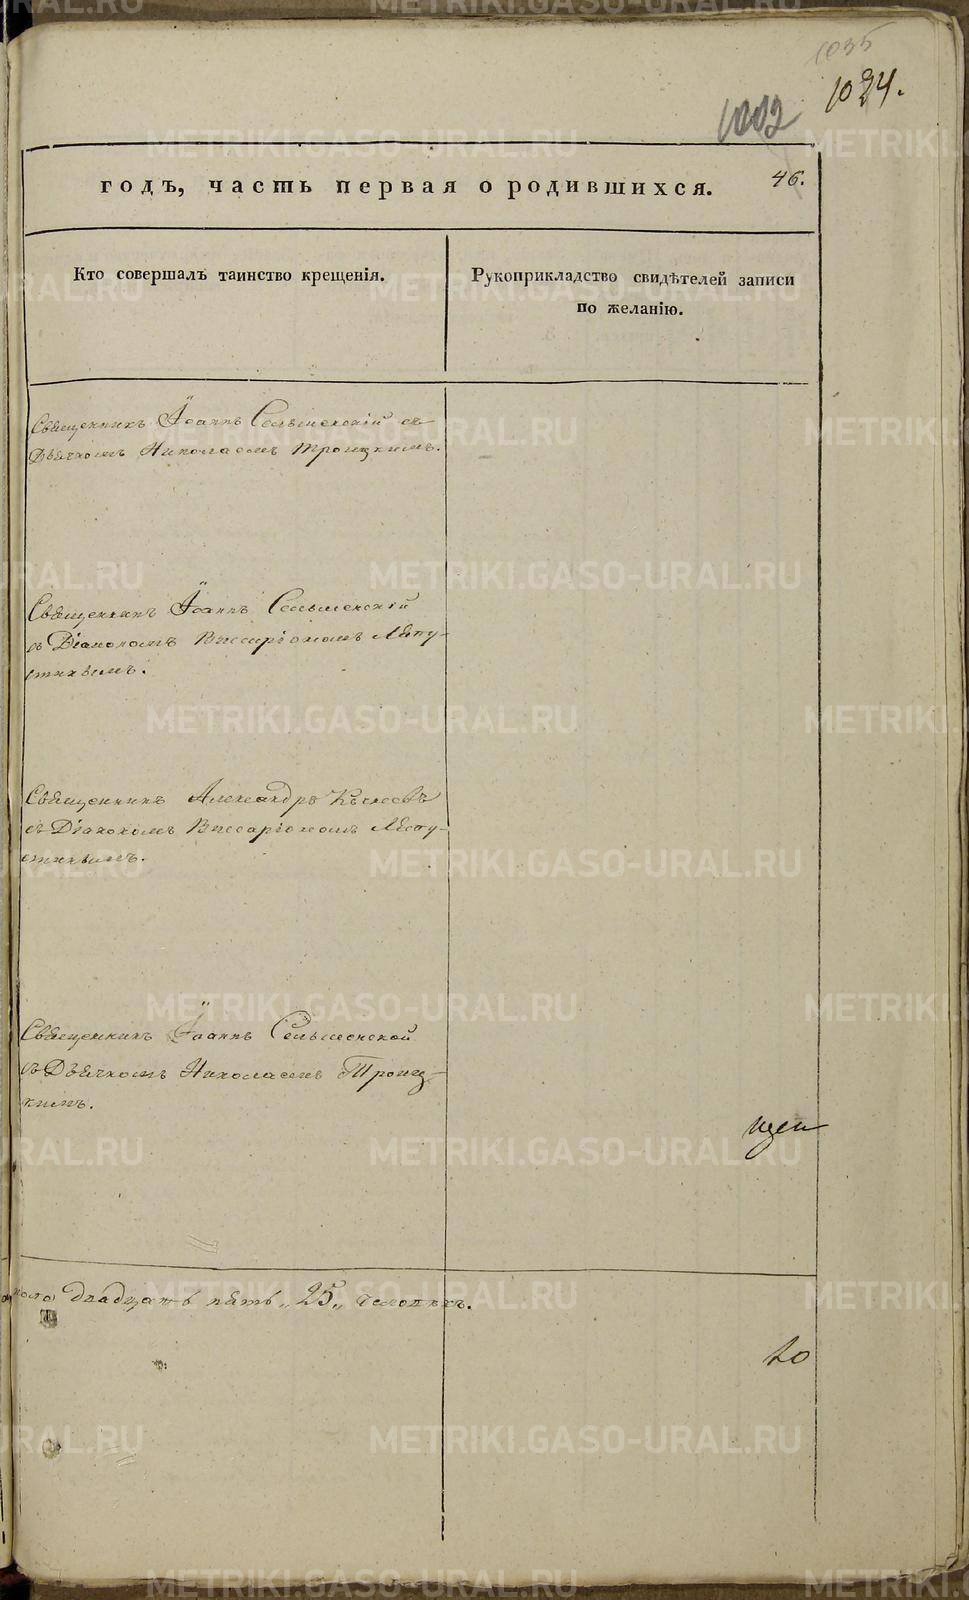 1035
1024.
1002
годъ, часть первая о родившихся. 46.
Кто совершалъ таинство крещенія.
Рукоприкладство свидѣтелей записи
по желанію.
Священникъ Іоаннъ Сельменскій съ
Дьячкомъ Николаемъ Троицкимъ.
Священникъ Іоаннъ Сельменскій
съ Діакономъ Виссаріономъ Ляпу-
стинымъ.
Священникъ Александръ
съ Діакономъ Виссаріономъ Ляпу-
стинымъ.
Священникъ Іоаннъ Сельменской
съ Дьячкомъ Николаемъ Троиц-
кимъ.
двадцать пять „25„ человѣкъ.
METRIKI.GASO-URAL.RU